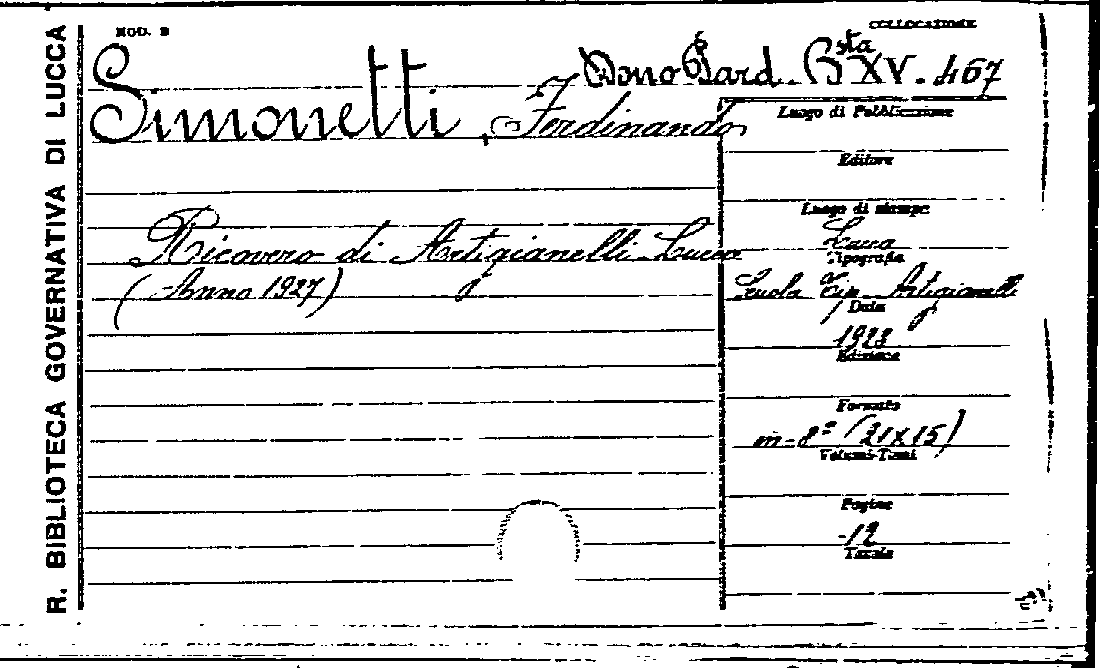 R. BIBLIOTECA GOVERNATIVA DI LUCCA
MOD. B
COLLOCAZIONE
Dono Pard. Bsta XV. 467
Simonetti, Ferdinando
Ricovero di Artigianelli-Lucca
(Anno 1927)
Luogo di Pubblicazione
Editore
Luogo di stampa
Lucca
Tipografia
Scuola Tip. Artigianelli
Data
1928
Edizione
Formato
in-8º (21x15)
Volumi-Tomi
Pagine
-12
Tavole